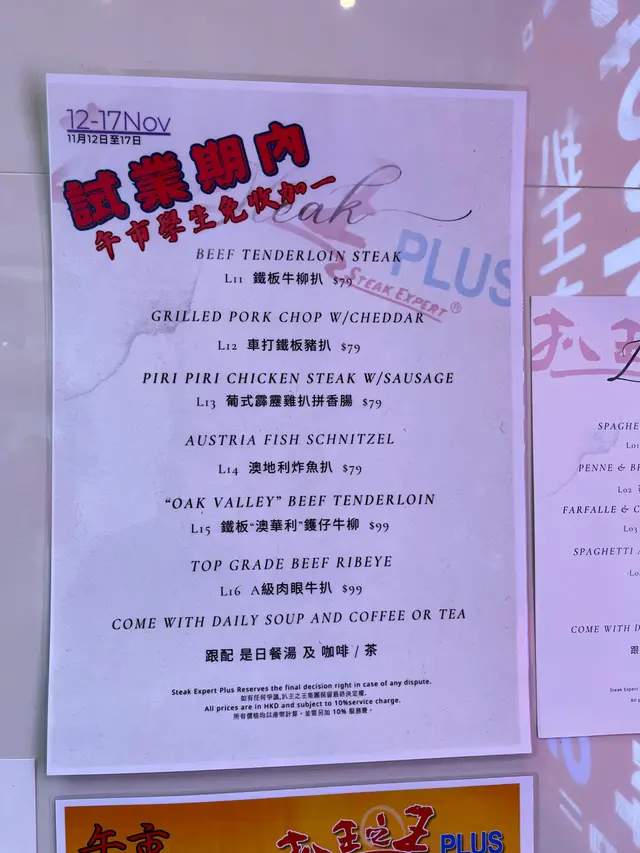 12-17Nov
11月12日至17日
試業期內
午市學生免收加一
Steak
PLUS
STEAK EXPERT®
BEEF TENDERLOIN STEAK
L11 鐵板牛柳扒 $79
GRILLED PORK CHOP W/CHEDDAR
L12 車打鐵板豬扒 $79
PIRI PIRI CHICKEN STEAK W/SAUSAGE
L13 葡式霹靂雞扒拼香腸 $79
AUSTRIA FISH SCHNITZEL
L14 澳地利炸魚扒 $79
“OAK VALLEY” BEEF TENDERLOIN
L15 鐵板“澳華利”鑊仔牛柳 $99
TOP GRADE BEEF RIBEYE
L16 A級肉眼牛扒 $99
COME WITH DAILY SOUP AND COFFEE OR TEA
跟配 是日餐湯 及 咖啡 / 茶
Steak Expert Plus Reserves the final decision right in case of any dispute.
如有任何爭議,扒王之王集團保留最終決定權.
All prices are in HKD and subject to 10%service charge.
所有價格均以港幣計算，並需另加 10% 服務費。
扒王
SPAGHE
L01
PENNE & B
L02
FARFALLE & C
L03
SPAGHETTI A
COME WITH D
跟
Steak Expert
All p
午市
扒王之王
PLUS